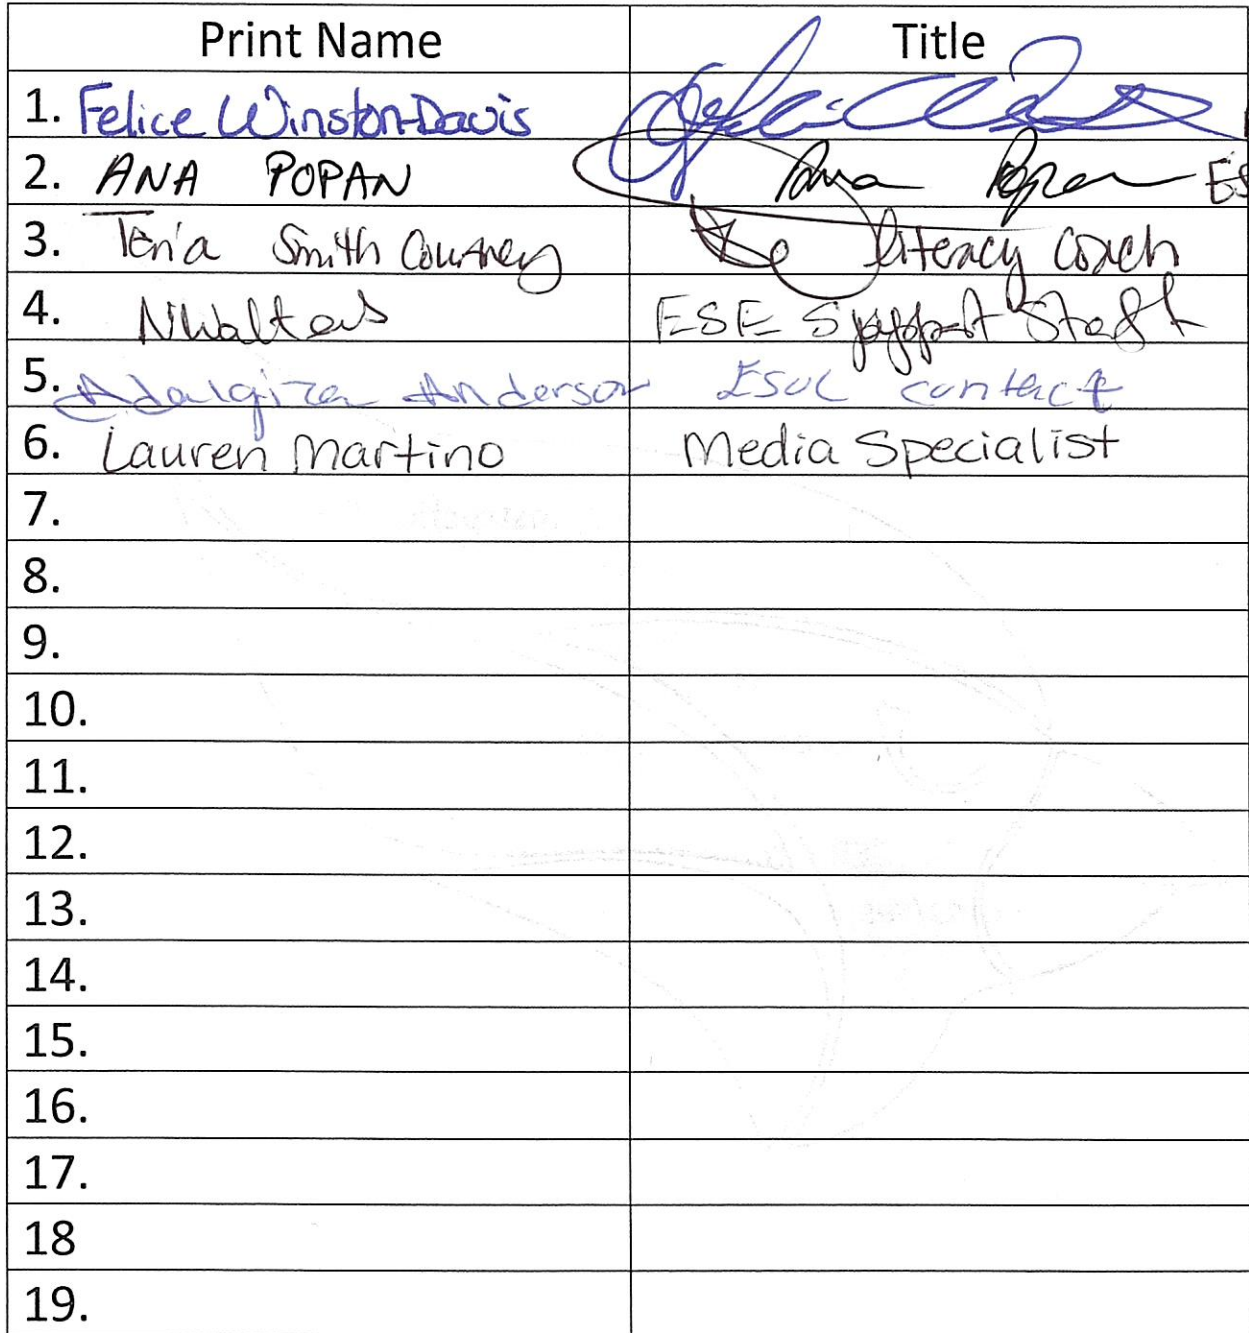 Print Name Title
1. Felice Winston-Davis
2. ANA POPAN Ana Popan ES
3. Teria Smith Courtney Literacy Coach
4. NWalters ESE Support Staff
5. Adalgiza Anderson ESOL contact
6. Lauren Martino Media Specialist
7.
8.
9.
10.
11.
12.
13.
14.
15.
16.
17.
18
19.